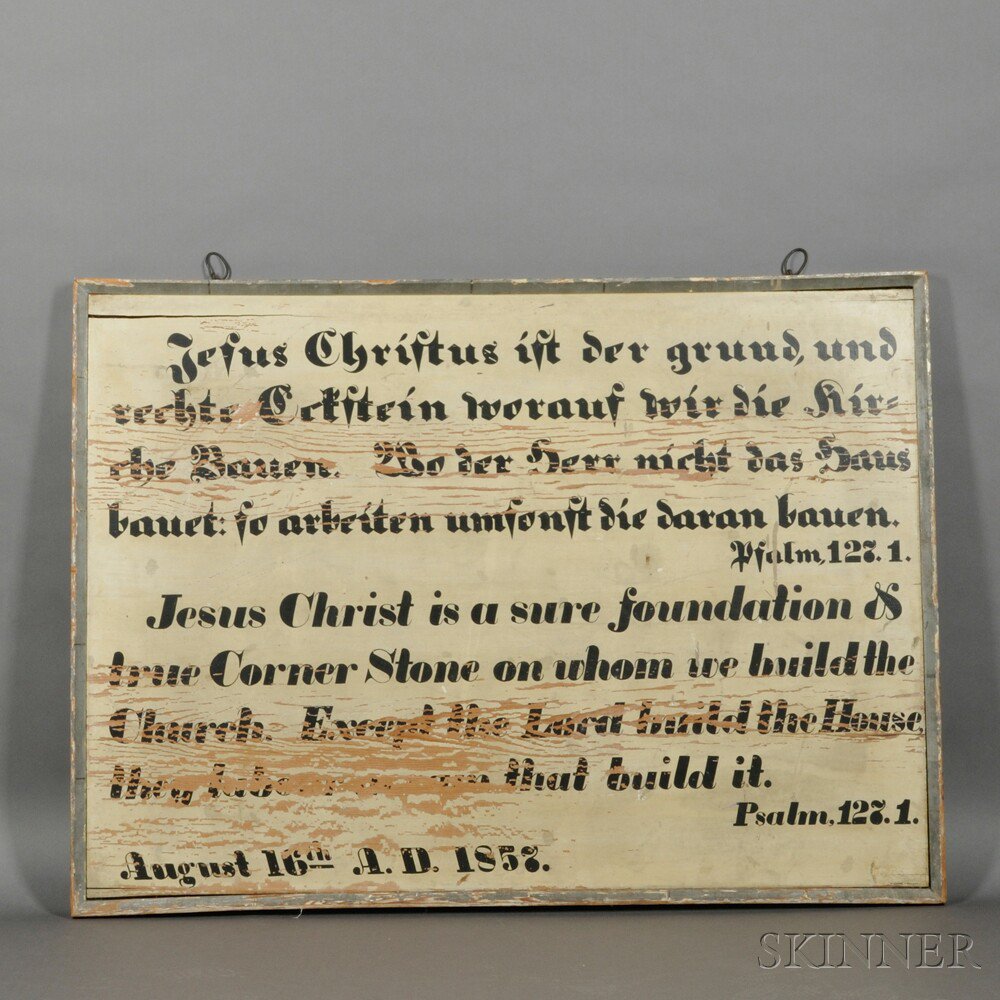 Jesus Christus ist der grund, und
rechte Eckstein worauf wir die Kir-
che Bauen. Wo der Herr nicht das Haus
bauet: so arbeiten umsonst die daran bauen.
Psalm, 127. 1.
Jesus Christ is a sure foundation &
true Corner Stone on whom we build the
Church. Except the Lord build the House,
they that build it.
Psalm, 127. 1.
August 16th A. D. 1857.
SKINNER